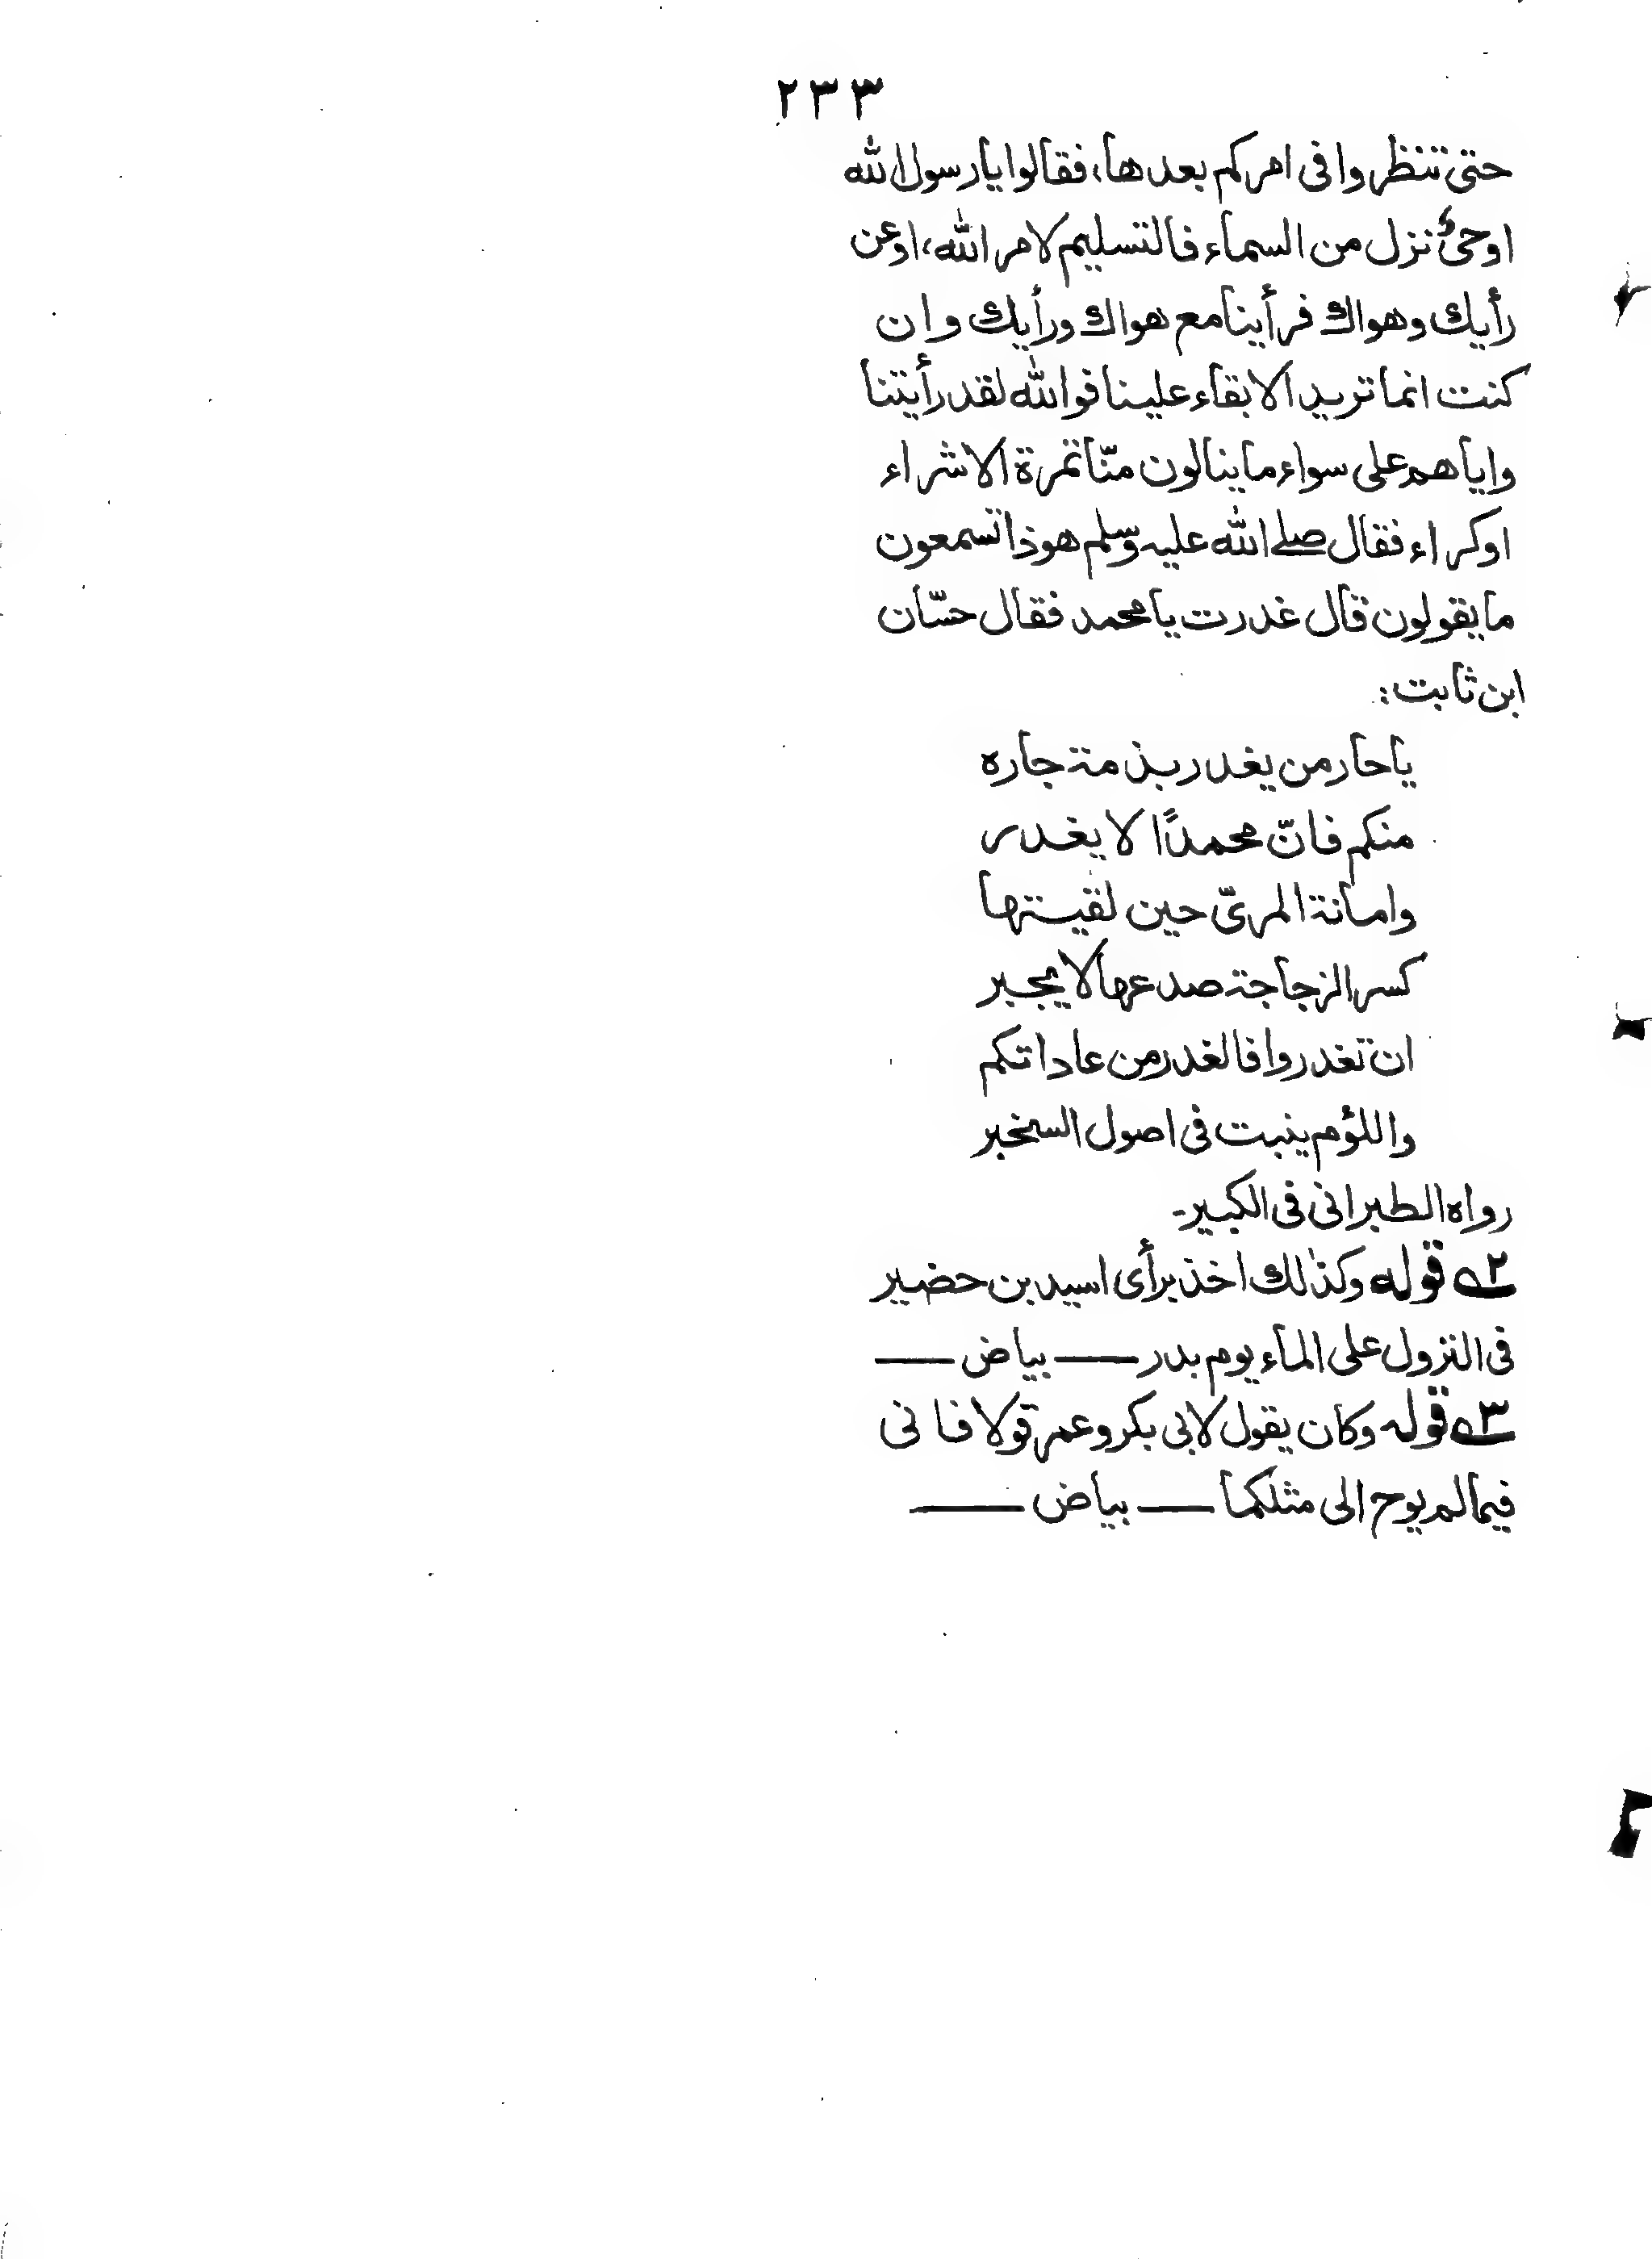 ٢٣٣
حتى تنظروا فى امركم بعدها، فقالوا يارسول الله
اوحىٌ نزل من السماء فالتسليم لامر الله، اوعن
رأيك وهواك فرأينا مع هواك ورأيك وان
كنت انما تريد الابقاء علينا فوالله لقد رأيتنا
واياهم على سواء ما ينالون منّا تمرة الاشراء
اوكراء فقال صلے الله عليه وسلم هوذا تسمعون
ما يقولون قال غدرت يا محمد فقال حسّان
ابن ثابت:
يا حار من يغدر بذمة جاره
منكم فانّ محمدًا لا يغدر
وامانة المرىّ حين لقيتها
كسر الزجاجة صدعها لا يجبر
ان تغدروا فالغدر من عاداتكم
واللؤم ينبت فى اصول السخبر
رواه الطبرانى فى الكبير۔
٢ے قوله وكذٰلك اخذ برأى اسيد بن حضير
فى النزول على الماء يوم بدر —— بياض ——
٣ے قوله وكان يقول لابى بكر وعمر قولا فانى
فيما لم يوح الى مثلكما —— بياض ——